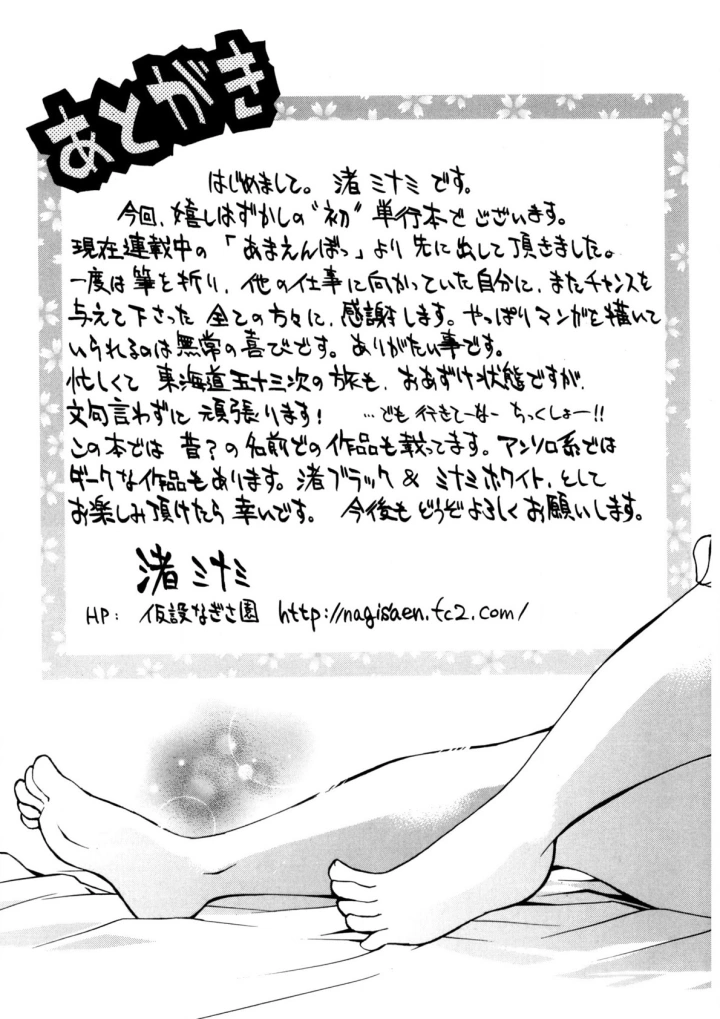 あとがき
はじめまして。渚ミナミです。
今回、嬉しはずかしの“初”単行本でございます。
現在連載中の「あまえんぼっ」より先に出して頂きました。
一度は筆を折り、他の仕事に向かっていた自分に、またチャンスを
与えて下さった全ての方々に、感謝します。やっぱりマンガを描いて
いられるのは無常の喜びです。ありがたい事です。
忙しくて東海道五十三次の旅も、おあずけ状態ですが、
文句言わずに頑張ります! …でも行きてーなー ちっくしょー!!
この本では昔?の名前での作品も載ってます。アンソロ系では
ダークな作品もあります。渚ブラック & ミナミホワイト、として
お楽しみ頂けたら幸いです。 今後もどうぞよろしくお願いします。
渚ミナミ
HP: 仮設なぎさ園 http://nagisaen.fc2.com/